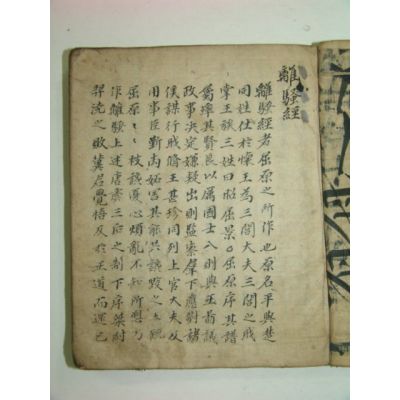 離騷經
離騷經者屈原之所作也原名平與楚
同姓仕於懷王為三閭大夫三閭之職
掌王族三姓曰昭屈景屈原序其譜
屬率其賢良以厲國士入則與王啚議
政事决定嫌疑出則監察羣下應對諸
侯謀行職脩王甚珍同列上官大夫及
用事臣靳尚妬害其能共譖毁之王疏
屈原〻〻被讒憂心煩亂不知所愬乃
作離騷上述唐虞三后之制下序桀紂
羿澆之敗冀君覺悟反於正道而還己